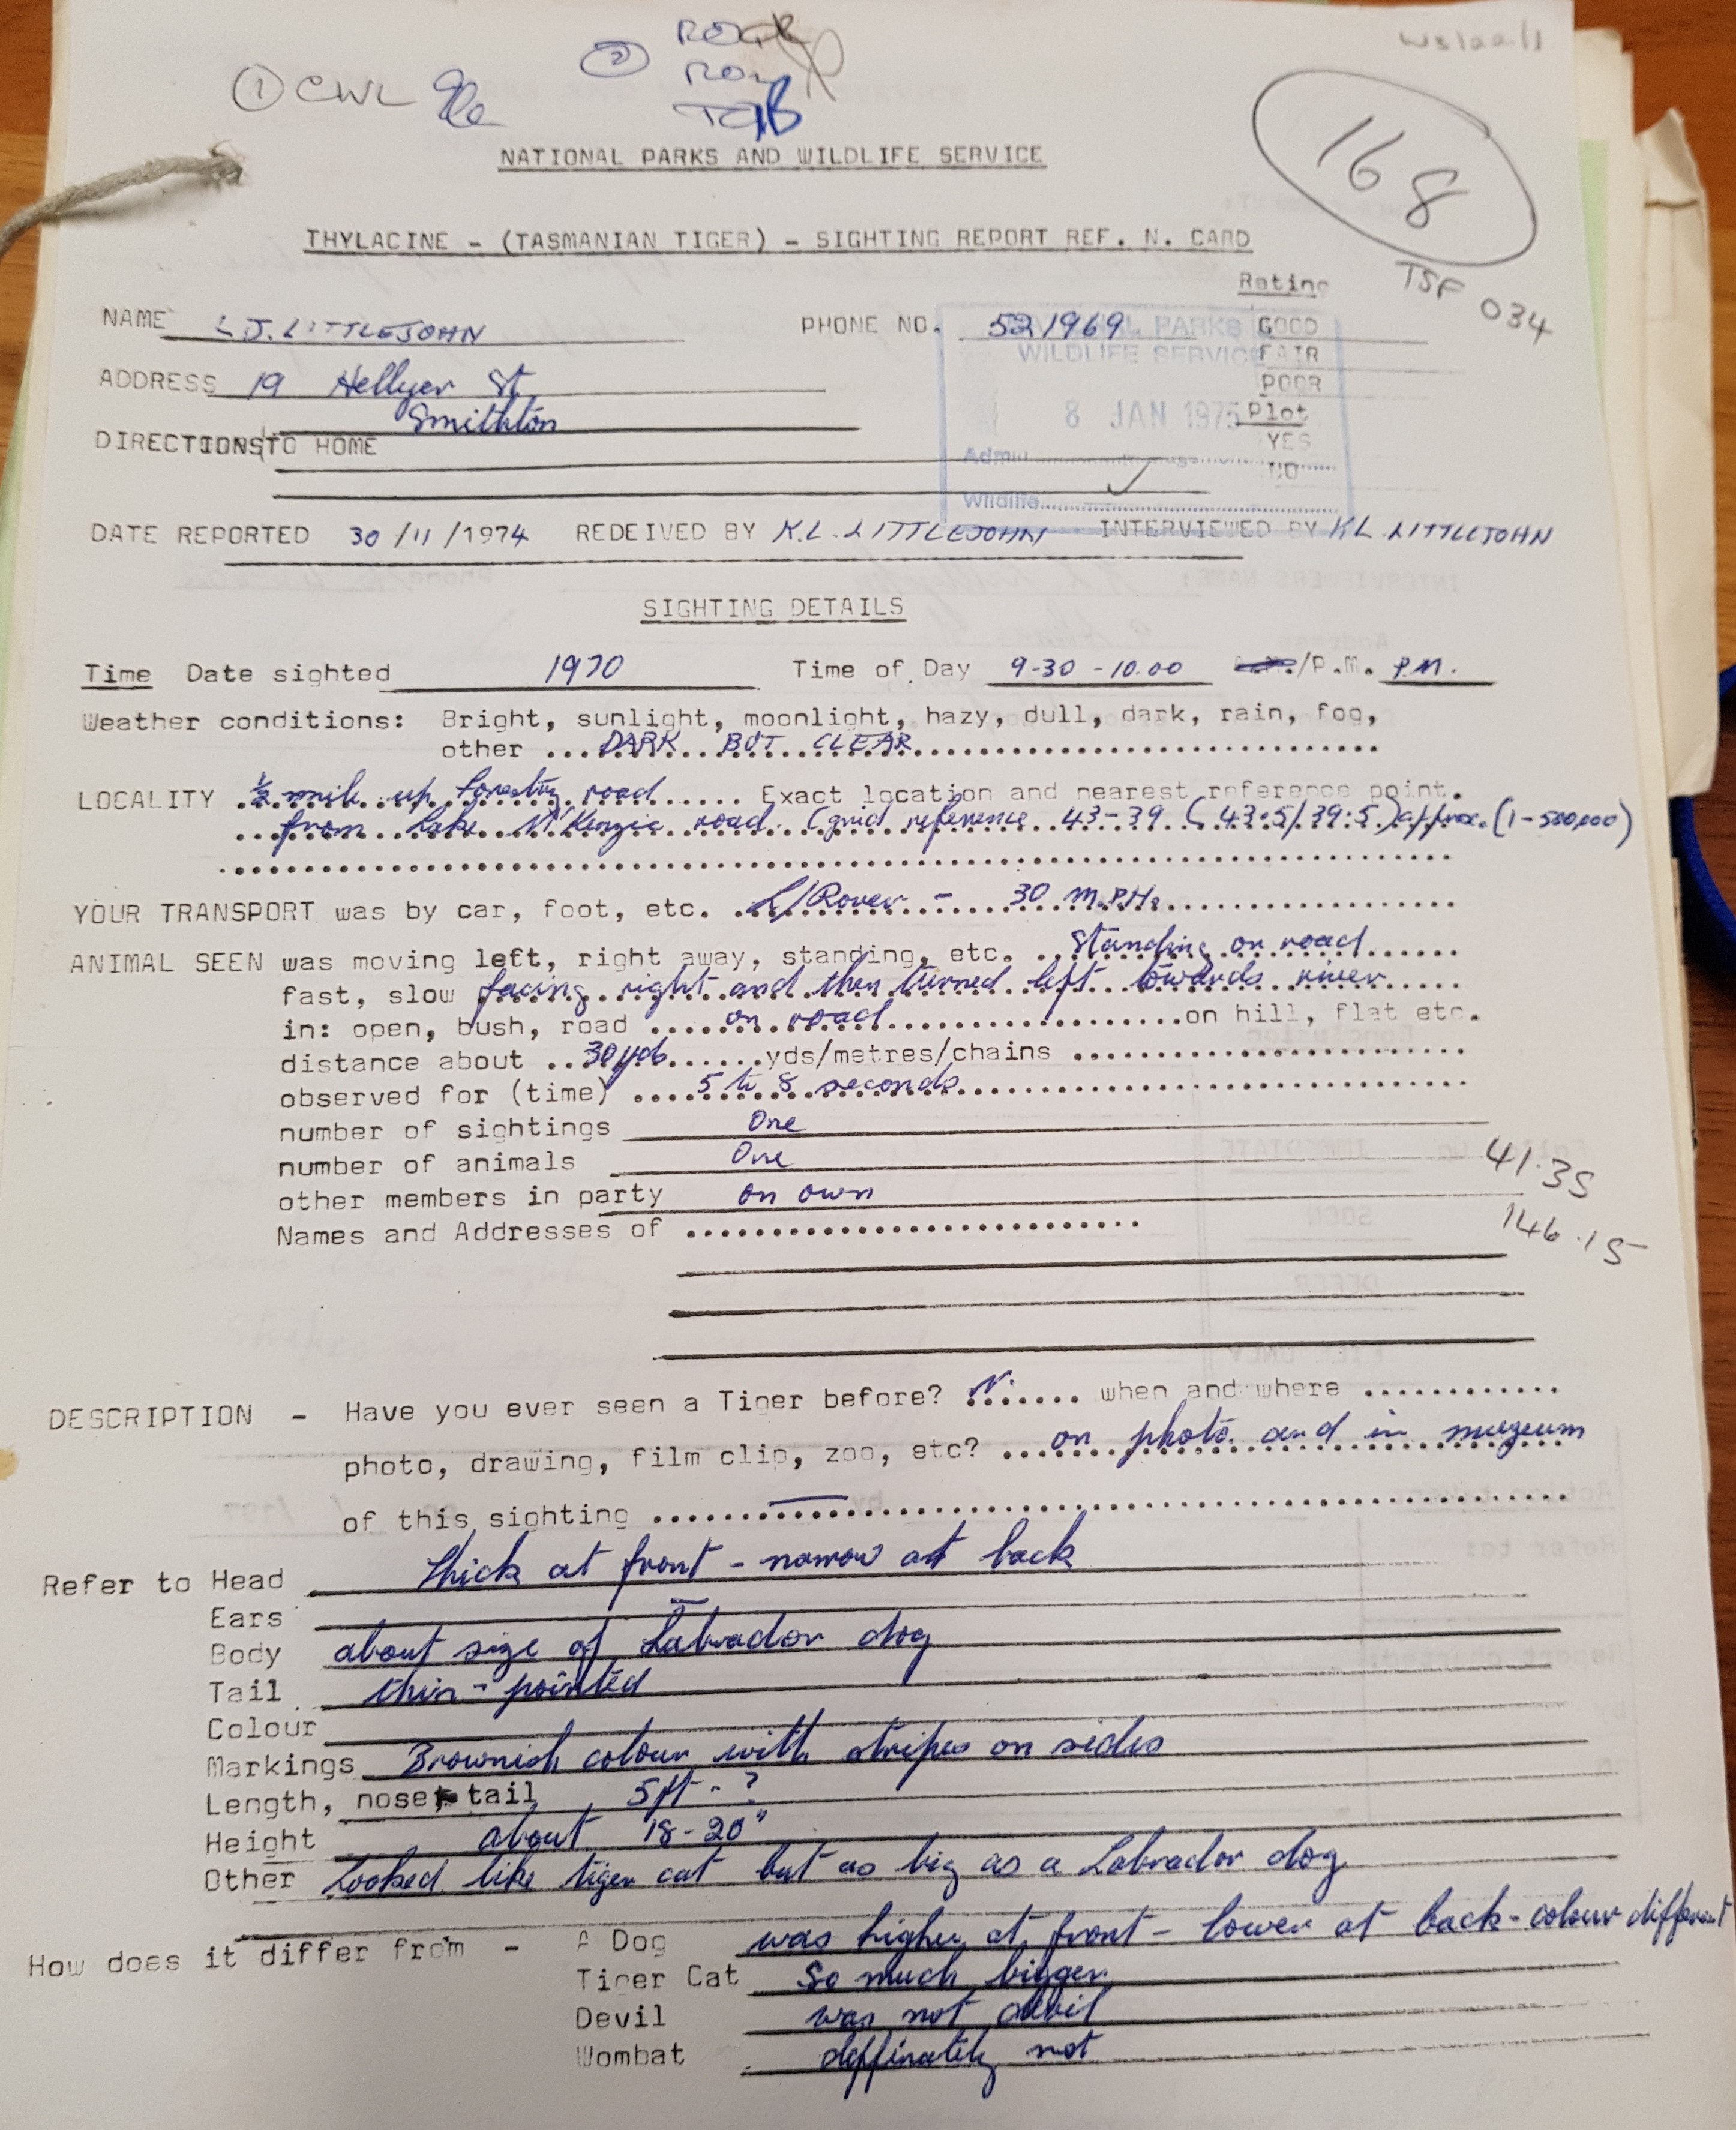 ① CWL
②
TGB
168
NATIONAL PARKS AND WILDLIFE SERVICE
THYLACINE - (TASMANIAN TIGER) - SIGHTING REPORT REF. N. CARD
TSF 034
Rating
NAME L J. LITTLEJOHN PHONE NO. 521969 GOOD
NATIONAL PARKS
WILDLIFE SERVICE FAIR
ADDRESS 19 Hellyer St POOR
Smithton 8 JAN 1975 Plot
DIRECTIONS TO HOME YES
Admin NO
Wildlife
DATE REPORTED 30/11/1974 REDEIVED BY K.L. LITTLEJOHN INTERVIEWED BY KL LITTLEJOHN
SIGHTING DETAILS
Time Date sighted 1970 Time of Day 9-30 - 10.00 A.M./P.M. P.M.
Weather conditions: Bright, sunlight, moonlight, hazy, dull, dark, rain, fog,
other ... DARK BUT CLEAR
LOCALITY ½ mile up forestry road ...... Exact location and nearest reference point.
from Lake McKenzie road. (grid reference 43-39 (43.5/39.5) approx. (1-500,000)
YOUR TRANSPORT was by car, foot, etc. L/Rover - 30 M.P.H.
ANIMAL SEEN was moving left, right away, standing, etc. Standing on road
fast, slow facing right and then turned left towards river
in: open, bush, road on road on hill, flat etc.
distance about 30yds yds/metres/chains
observed for (time) 5 to 8 seconds
number of sightings One
number of animals One
41.35
other members in party on own
146.15
Names and Addresses of
DESCRIPTION - Have you ever seen a Tiger before? N. when and where
photo, drawing, film clip, zoo, etc? on photo and in muzeum
of this sighting —
Refer to Head thick at front - narrow at back
Ears —
Body about size of Labrador dog
Tail thin - pointed
Colour
Markings Brownish colour with stripes on sides
Length, nose, tail 5ft - ?
Height about 18-20"
Other Looked like tiger cat but as big as a Labrador dog
How does it differ from - A Dog was higher at front - lower at back - colour different
Tiger Cat So much bigger
Devil was not devil
Wombat deffinately not